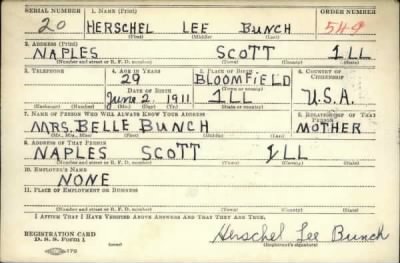 SERIAL NUMBER 1. NAME (Print) ORDER NUMBER
20 HERSCHEL LEE BUNCH 549
(First) (Middle) (Last)
2. ADDRESS (Print)
NAPLES SCOTT ILL
(Number and street or R. F. D. number) (Town) (County) (State)
3. TELEPHONE 4. AGE IN YEARS 5. PLACE OF BIRTH 6. COUNTRY OF CITIZENSHIP
29 BLOOMFIELD
DATE OF BIRTH (Town or county)
June 2 1911 ILL U.S.A.
(Exchange) (Number) (Mo.) (Day) (Yr.) (State or country)
7. NAME OF PERSON WHO WILL ALWAYS KNOW YOUR ADDRESS 8. RELATIONSHIP OF THAT PERSON
MRS. BELLE BUNCH MOTHER
(Mr., Mrs., Miss) (First) (Middle) (Last)
9. ADDRESS OF THAT PERSON
NAPLES SCOTT ILL
(Number and street or R. F. D. number) (Town) (County) (State)
10. EMPLOYER'S NAME
NONE
11. PLACE OF EMPLOYMENT OR BUSINESS
(Number and street or R. F. D. number) (Town) (County) (State)
I AFFIRM THAT I HAVE VERIFIED ABOVE ANSWERS AND THAT THEY ARE TRUE.
REGISTRATION CARD
D. S. S. Form 1 Herschel Lee Bunch
(Registrant's signature)